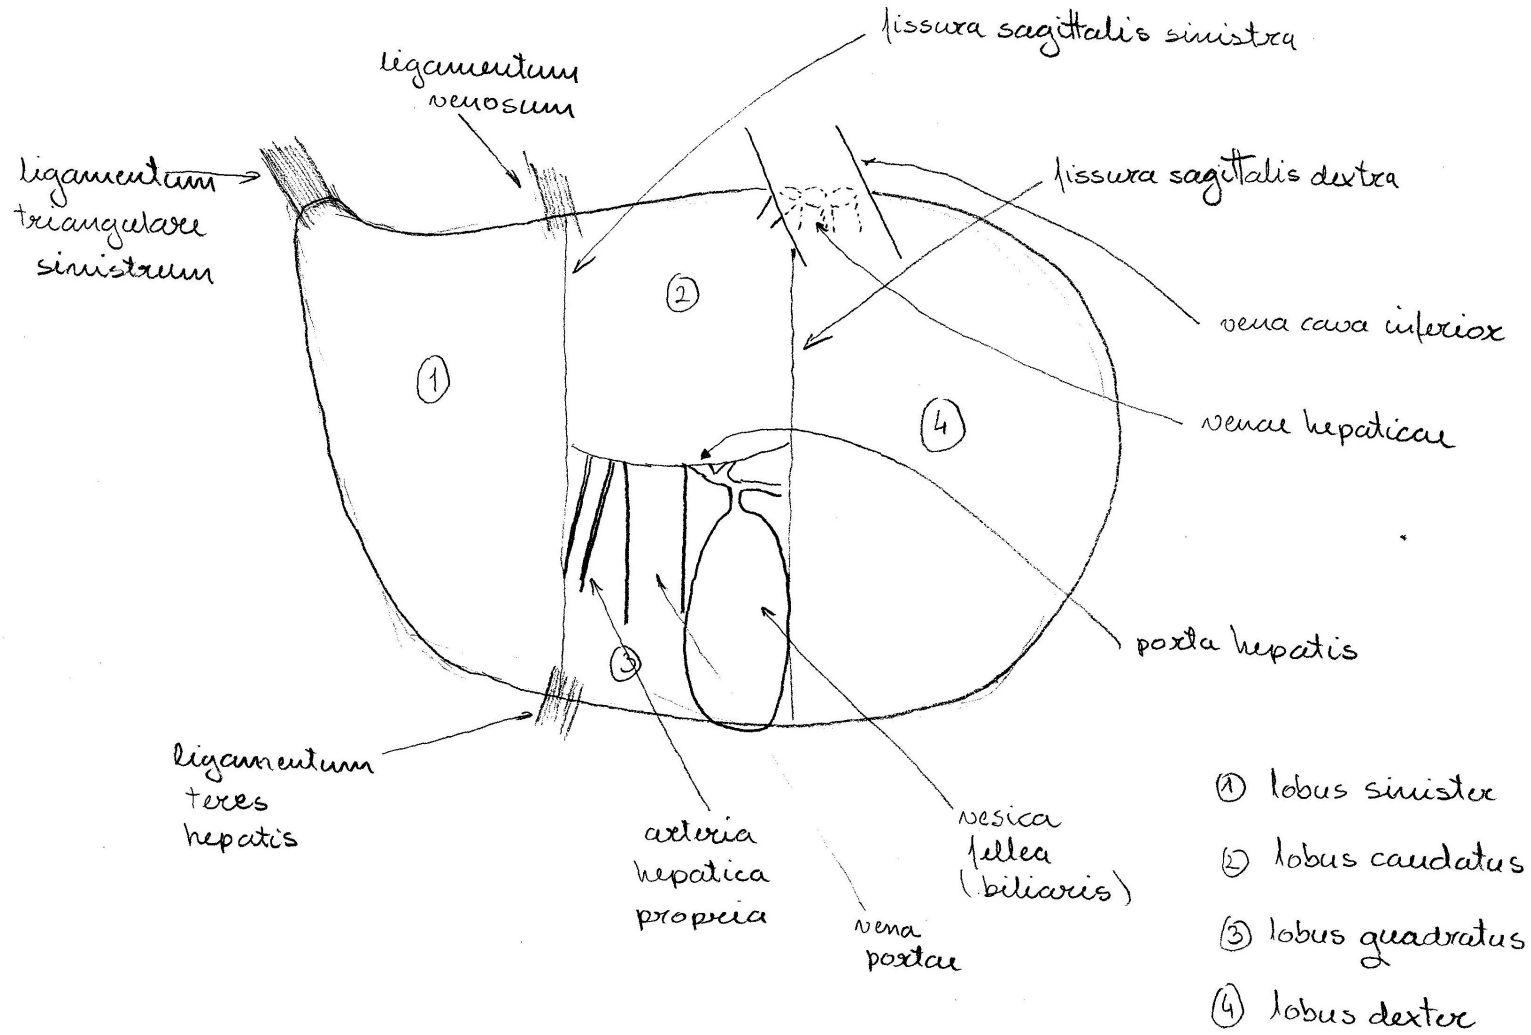 fissura sagittalis sinistra
ligamentum
venosum
ligamentum
triangulare
sinistrum
fissura sagittalis dextra
vena cava inferior
venae hepaticae
porta hepatis
ligamentum
teres
hepatis
arteria
hepatica
propria
vena
portae
vesica
fellea
(biliaris)
2
1
4
3
1 lobus sinister
2 lobus caudatus
3 lobus quadratus
4 lobus dexter